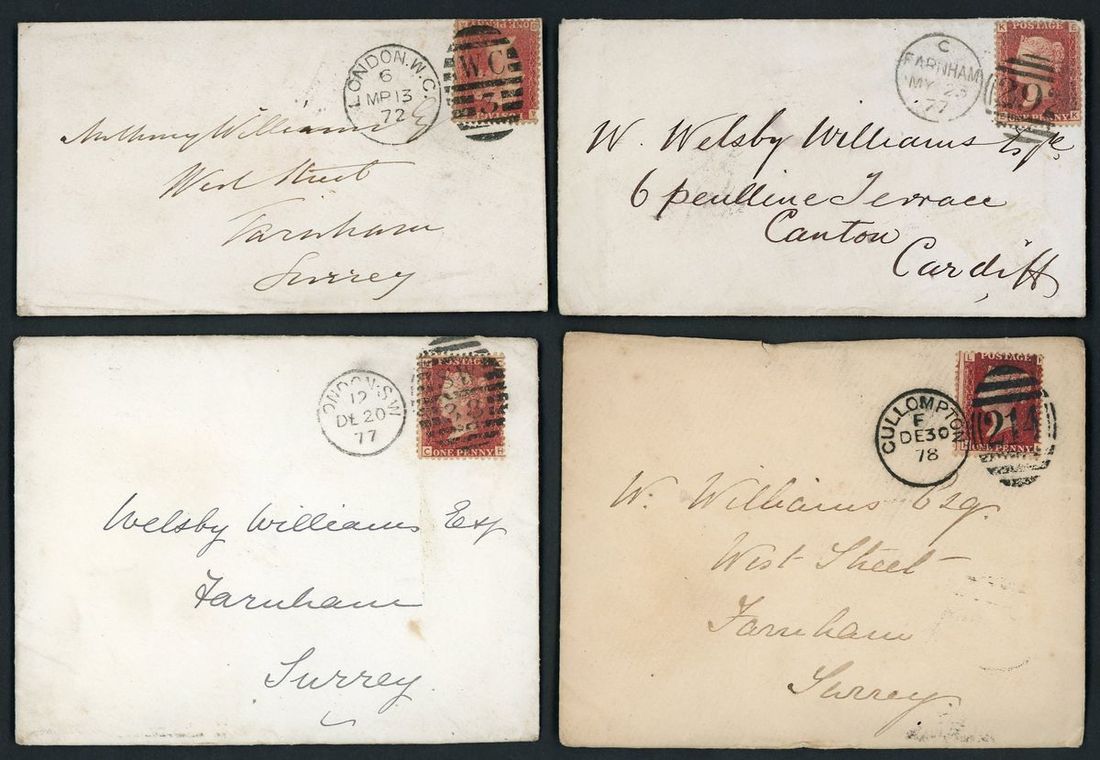 LONDON. W.C
6
MR 13
72
W.C
3
Anthony Williams Esq
West Street
Farnham
Surrey
C
FARNHAM
MY 23
77
POSTAGE
K E
29
ONE PENNY
E K
W. Welsby Williams Esqre
6 penlline Terrace
Canton
Cardiff
LONDON. S.W
12
DE 20
77
POSTAGE
C ONE PENNY H
Welsby Williams Esq
Farnham
Surrey
CULLOMPTON
F
DE 30
78
L POSTAGE
214
ONE PENNY
W. Williams Esq.
West Street
Farnham
Surrey.